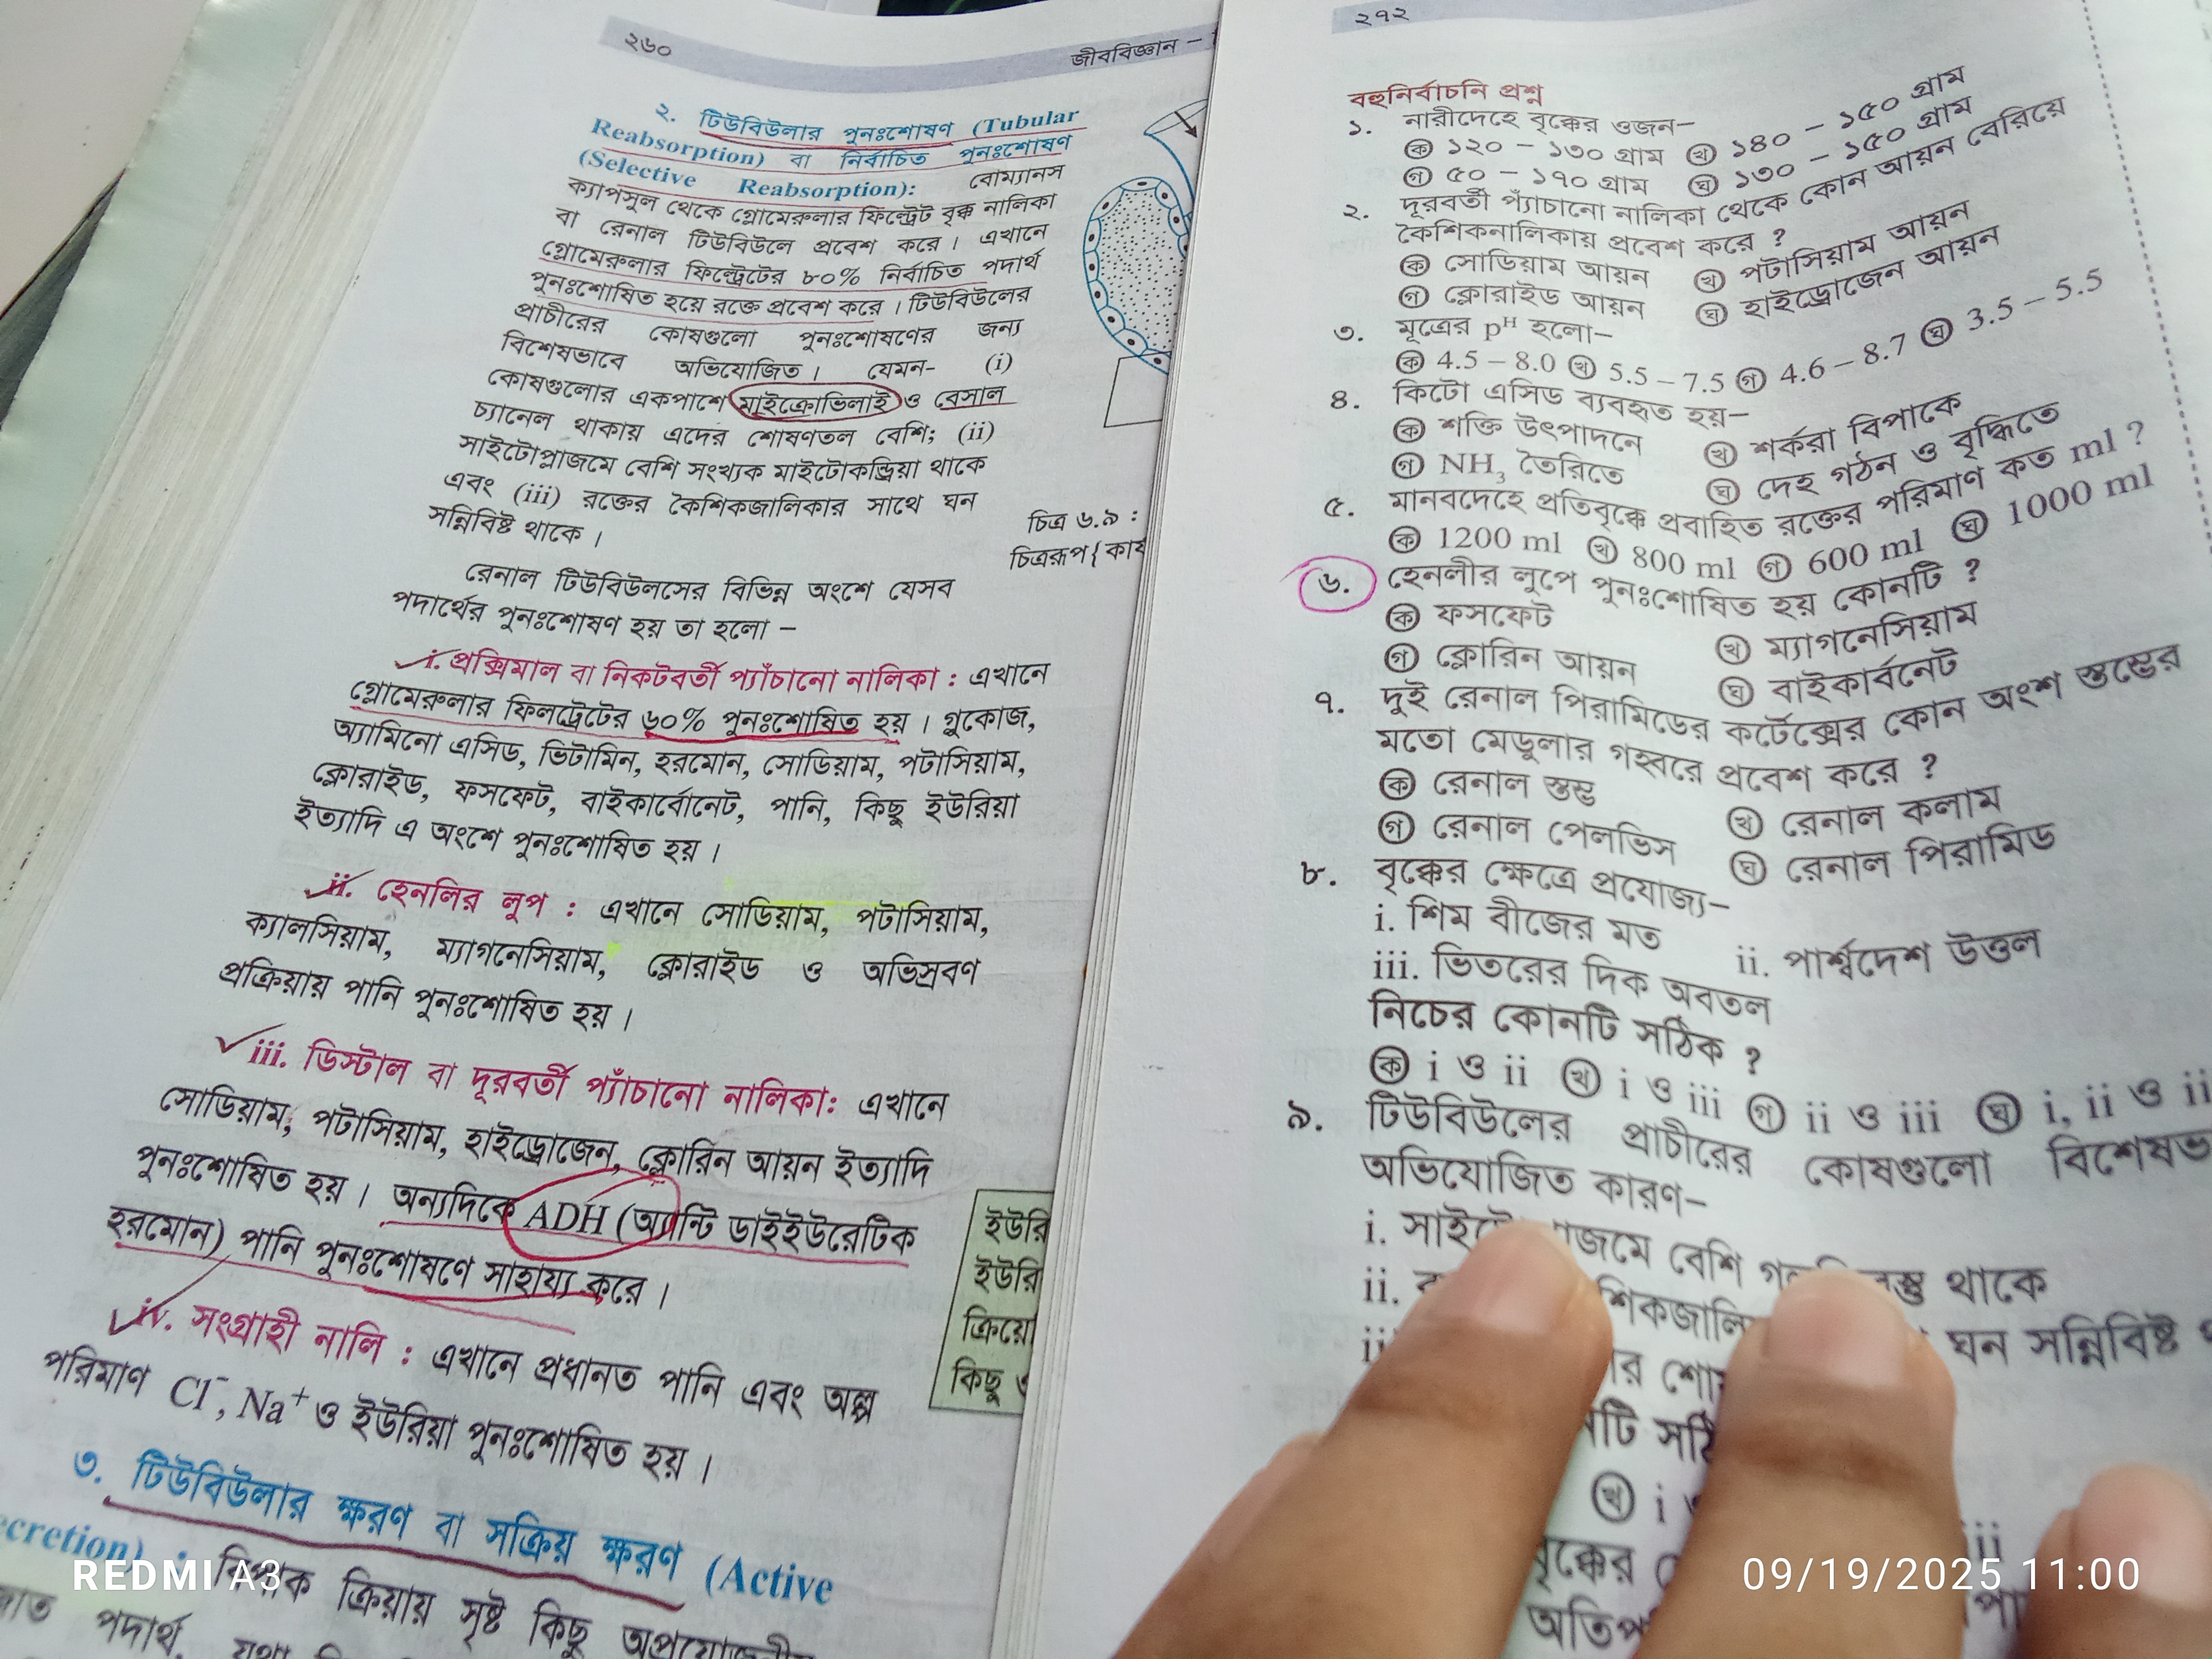 ২৬০
জীববিজ্ঞান –
২. টিউবিউলার পুনঃশোষণ (Tubular
Reabsorption) বা নির্বাচিত পুনঃশোষণ
(Selective Reabsorption): বোম্যানস
ক্যাপসুল থেকে গ্লোমেরুলার ফিল্ট্রেট বৃক্ক নালিকা
বা রেনাল টিউবিউলে প্রবেশ করে। এখানে
গ্লোমেরুলার ফিল্ট্রেটের ৮০% নির্বাচিত পদার্থ
পুনঃশোষিত হয়ে রক্তে প্রবেশ করে। টিউবিউলের
প্রাচীরের কোষগুলো পুনঃশোষণের জন্য
বিশেষভাবে অভিযোজিত। যেমন- (i)
কোষগুলোর একপাশে মাইক্রোভিলাই ও বেসাল
চ্যানেল থাকায় এদের শোষণতল বেশি; (ii)
সাইটোপ্লাজমে বেশি সংখ্যক মাইটোকন্ড্রিয়া থাকে
এবং (iii) রক্তের কৈশিকজালিকার সাথে ঘন
সন্নিবিষ্ট থাকে।
চিত্র ৬.৯ :
চিত্ররূপ {কার্য
রেনাল টিউবিউলসের বিভিন্ন অংশে যেসব
পদার্থের পুনঃশোষণ হয় তা হলো –
i. প্রক্সিমাল বা নিকটবর্তী প্যাঁচানো নালিকা : এখানে
গ্লোমেরুলার ফিলট্রেটের ৬০% পুনঃশোষিত হয়। গ্লুকোজ,
অ্যামিনো এসিড, ভিটামিন, হরমোন, সোডিয়াম, পটাসিয়াম,
ক্লোরাইড, ফসফেট, বাইকার্বোনেট, পানি, কিছু ইউরিয়া
ইত্যাদি এ অংশে পুনঃশোষিত হয়।
ii. হেনলির লুপ : এখানে সোডিয়াম, পটাসিয়াম,
ক্যালসিয়াম, ম্যাগনেসিয়াম, ক্লোরাইড ও অভিস্রবণ
প্রক্রিয়ায় পানি পুনঃশোষিত হয়।
iii. ডিস্টাল বা দূরবর্তী প্যাঁচানো নালিকা: এখানে
সোডিয়াম, পটাসিয়াম, হাইড্রোজেন, ক্লোরিন আয়ন ইত্যাদি
পুনঃশোষিত হয়। অন্যদিকে ADH (অ্যান্টি ডাইইউরেটিক
হরমোন) পানি পুনঃশোষণে সাহায্য করে।
iv. সংগ্রাহী নালি : এখানে প্রধানত পানি এবং অল্প
পরিমাণ Cl⁻, Na⁺ ও ইউরিয়া পুনঃশোষিত হয়।
৩. টিউবিউলার ক্ষরণ বা সক্রিয় ক্ষরণ (Active
ecretion) : বিপাক ক্রিয়ায় সৃষ্ট কিছু অপ্রয়োজনীয়
পদার্থ, যথা
ইউরি
ইউরি
ক্রিয়ে
কিছু
২৭২
বহুনির্বাচনি প্রশ্ন
১. নারীদেহে বৃক্কের ওজন–
ক ১২০ – ১৩০ গ্রাম খ ১৪০ – ১৫০ গ্রাম
গ ৫০ – ১৭০ গ্রাম ঘ ১৩০ – ১৫০ গ্রাম
২. দূরবর্তী প্যাঁচানো নালিকা থেকে কোন আয়ন বেরিয়ে
কৈশিকনালিকায় প্রবেশ করে ?
ক সোডিয়াম আয়ন খ পটাসিয়াম আয়ন
গ ক্লোরাইড আয়ন ঘ হাইড্রোজেন আয়ন
৩. মূত্রের pᴴ হলো–
ক 4.5 – 8.0 খ 5.5 – 7.5 গ 4.6 – 8.7 ঘ 3.5 – 5.5
৪. কিটো এসিড ব্যবহৃত হয়–
ক শক্তি উৎপাদনে খ শর্করা বিপাকে
গ NH₃ তৈরিতে ঘ দেহ গঠন ও বৃদ্ধিতে
৫. মানবদেহে প্রতিবৃক্কে প্রবাহিত রক্তের পরিমাণ কত ml ?
ক 1200 ml খ 800 ml গ 600 ml ঘ 1000 ml
৬. হেনলীর লুপে পুনঃশোষিত হয় কোনটি ?
ক ফসফেট খ ম্যাগনেসিয়াম
গ ক্লোরিন আয়ন ঘ বাইকার্বনেট
৭. দুই রেনাল পিরামিডের কর্টেক্সের কোন অংশ স্তম্ভের
মতো মেডুলার গহ্বরে প্রবেশ করে ?
ক রেনাল স্তম্ভ খ রেনাল কলাম
গ রেনাল পেলভিস ঘ রেনাল পিরামিড
৮. বৃক্কের ক্ষেত্রে প্রযোজ্য–
i. শিম বীজের মত ii. পার্শ্বদেশ উত্তল
iii. ভিতরের দিক অবতল
নিচের কোনটি সঠিক ?
ক i ও ii খ i ও iii গ ii ও iii ঘ i, ii ও ii
৯. টিউবিউলের প্রাচীরের কোষগুলো বিশেষভ
অভিযোজিত কারণ–
i. সাইটো জমে বেশি থাকে
ii. শিকজালি ঘন সন্নিবিষ্ট
র শো
টি সঠি
খ i
বৃক্কের
অতিপ
REDMI A3
09/19/2025 11:00